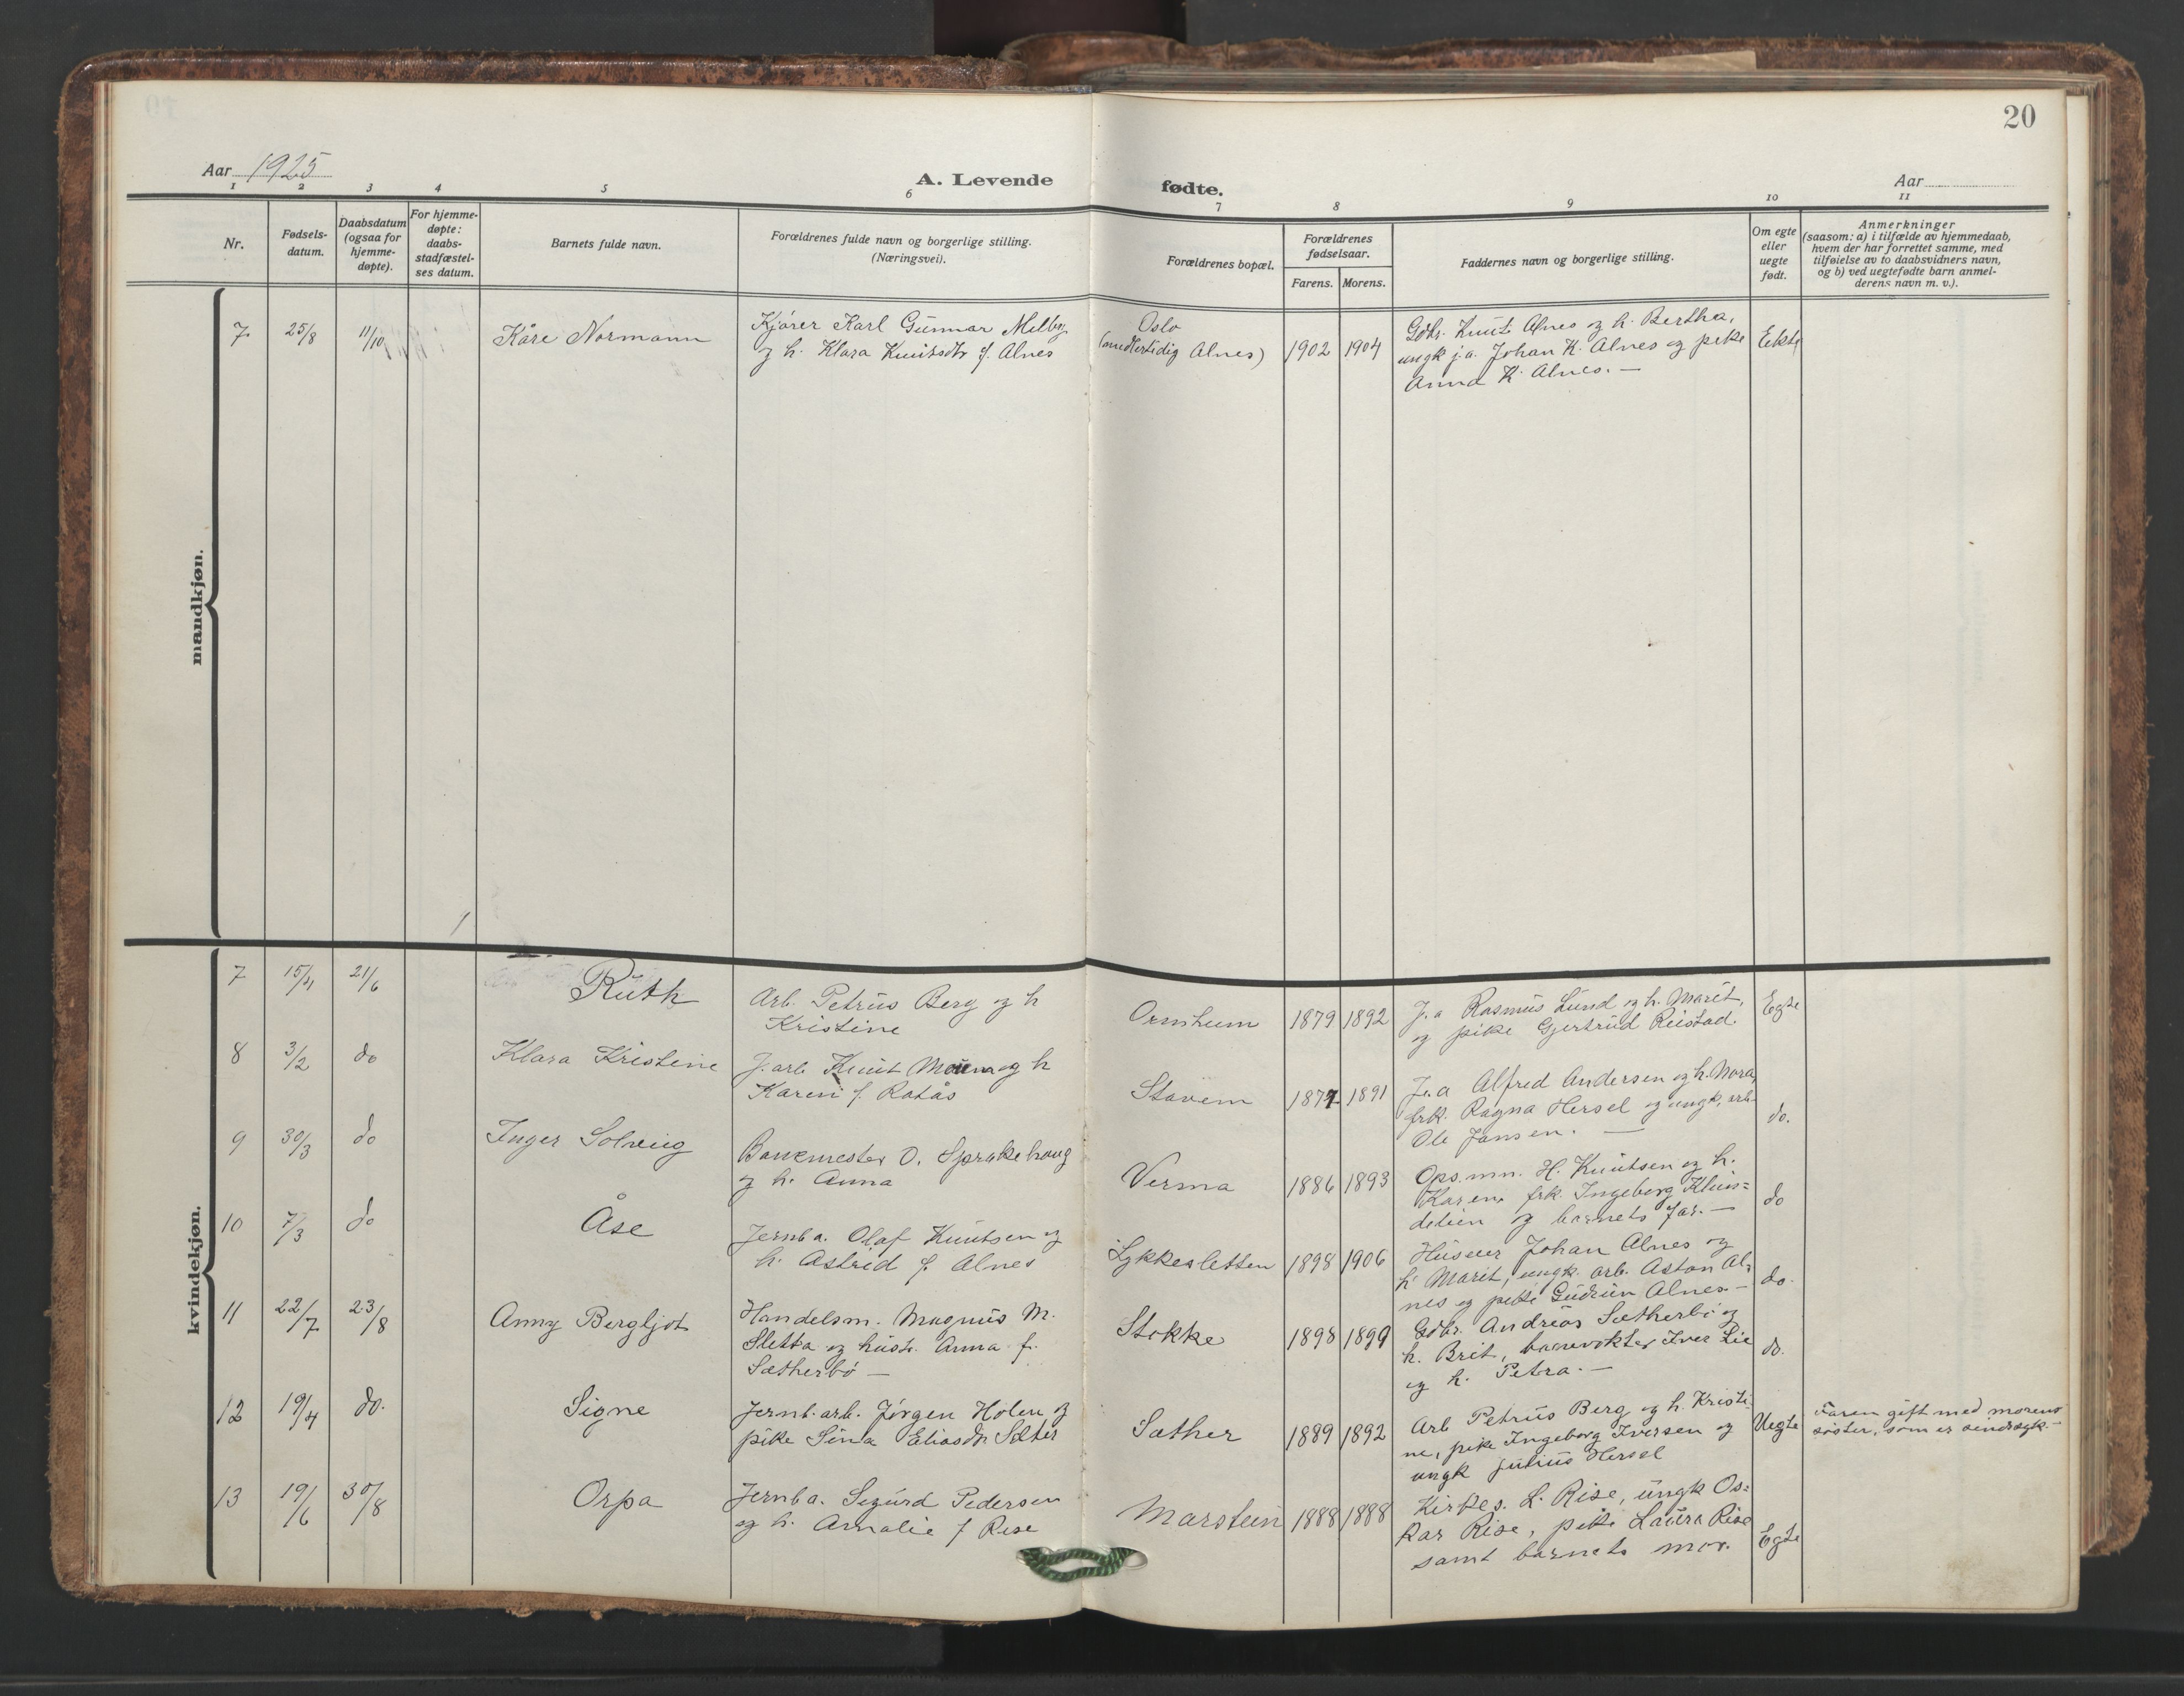 20
Aar 1925
A. Levende
fødte.
Aar
1 2 3 4 5 6 7 8 9 10 11
Nr.
Fødsels-
datum.
Daabsdatum
(ogsaa for
hjemme-
døpte).
For hjemme-
døpte:
daabs-
stadfæstel-
ses datum.
Barnets fulde navn.
Forældrenes fulde navn og borgerlige stilling.
(Næringsvei).
Forældrenes bopæl.
Forældrenes
fødselsaar.
Farens. Morens.
Faddernes navn og borgerlige stilling.
Om egte
eller
uegte
født.
Anmerkninger
(saasom: a) i tilfælde av hjemmedaab,
hvem der har forrettet samme, med
tilføielse av to daabsvidners navn,
og b) ved uegtefødte barn anmel-
derens navn m. v.).
mandkjøn.
7 25/8 11/10 Kåre Normann
Kjører Karl Gunnar Melby
og h. Klara Knutsdtr f. Alnes
Oslo
(midlertidig Alnes)
1902 1904
Gdbr. Knut Alnes og h. Bertha,
ungk j.a. Johan K. Alnes og pike
Anna K. Alnes. —
Ekte
kvindekjøn.
7 15/4 21/6 Ruth
Arb. Petrus Berg og h
Kristine
Ormheim
1879 1892
J.a Rasmus Lund og h. Marit,
og pike Gjertrud Reistad.
Egte
8 3/2 do Klara Kristine
J.arb Knut og h
Karen f. Rotås
Stavem
1877 1891
Je.a Alfred Andersen og h. Nora,
frk. Ragna Hersel og ungk. arb.
Ole Jansen. —
do.
9 30/3 do Inger Solveig
Banemester O. Sprakehaug
og h. Anna
Verma
1886 1893
Ops.mn. H. Knutsen og h.
Karen, frk. Ingeborg
og barnets far. —
do
10 7/3 do Åse
Jernb a. Olaf Knutsen og
h. Astrid f. Alnes
Lykkesletten
1898 1906
Huseier Johan Alnes og
h. Marit, ungk. arb. Aston Al-
nes og pike Gudrun Alnes. —
do.
11 22/7 23/8 Anny Bergljot
Handelsm. Magnus M.
Sletta og hustr. Anna f.
Sætherbø —
Stokke
1898 1899
Gdbr. Andreas Sætherbø og
h. Brit, banevokter Iver Lie
og h. Petra. —
do.
12 19/4 do. Signe
Jernb.arb. Jørgen Holen og
pike Sina Eliasdtr Sæter
Sæther
1889 1892
Arb Petrus Berg og h. Kristi-
ne, pike Ingeborg Iversen og
ungk Julius Hersel
Uegte
Faren gift med morens
søster, som er sindssyk. —
13 19/6 30/8 Orpa
Jernb a. Sigurd Pedersen
og h. Amalie f Rise
Marstein
1888 1888
Kirkes. L. Rise, ungk Os-
kar Rise, pike Laura Rise
samt barnets mor.
Egte